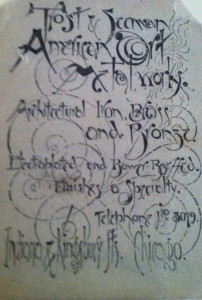 Frost & Seaman
American Art
Metal Works.
Architectural Iron, Brass
and Bronze
Electroplated and Bower-Barffed
Finishes a Specialty.
Telephone No 3079.
Indiana & Kingsbury Sts. Chicago.